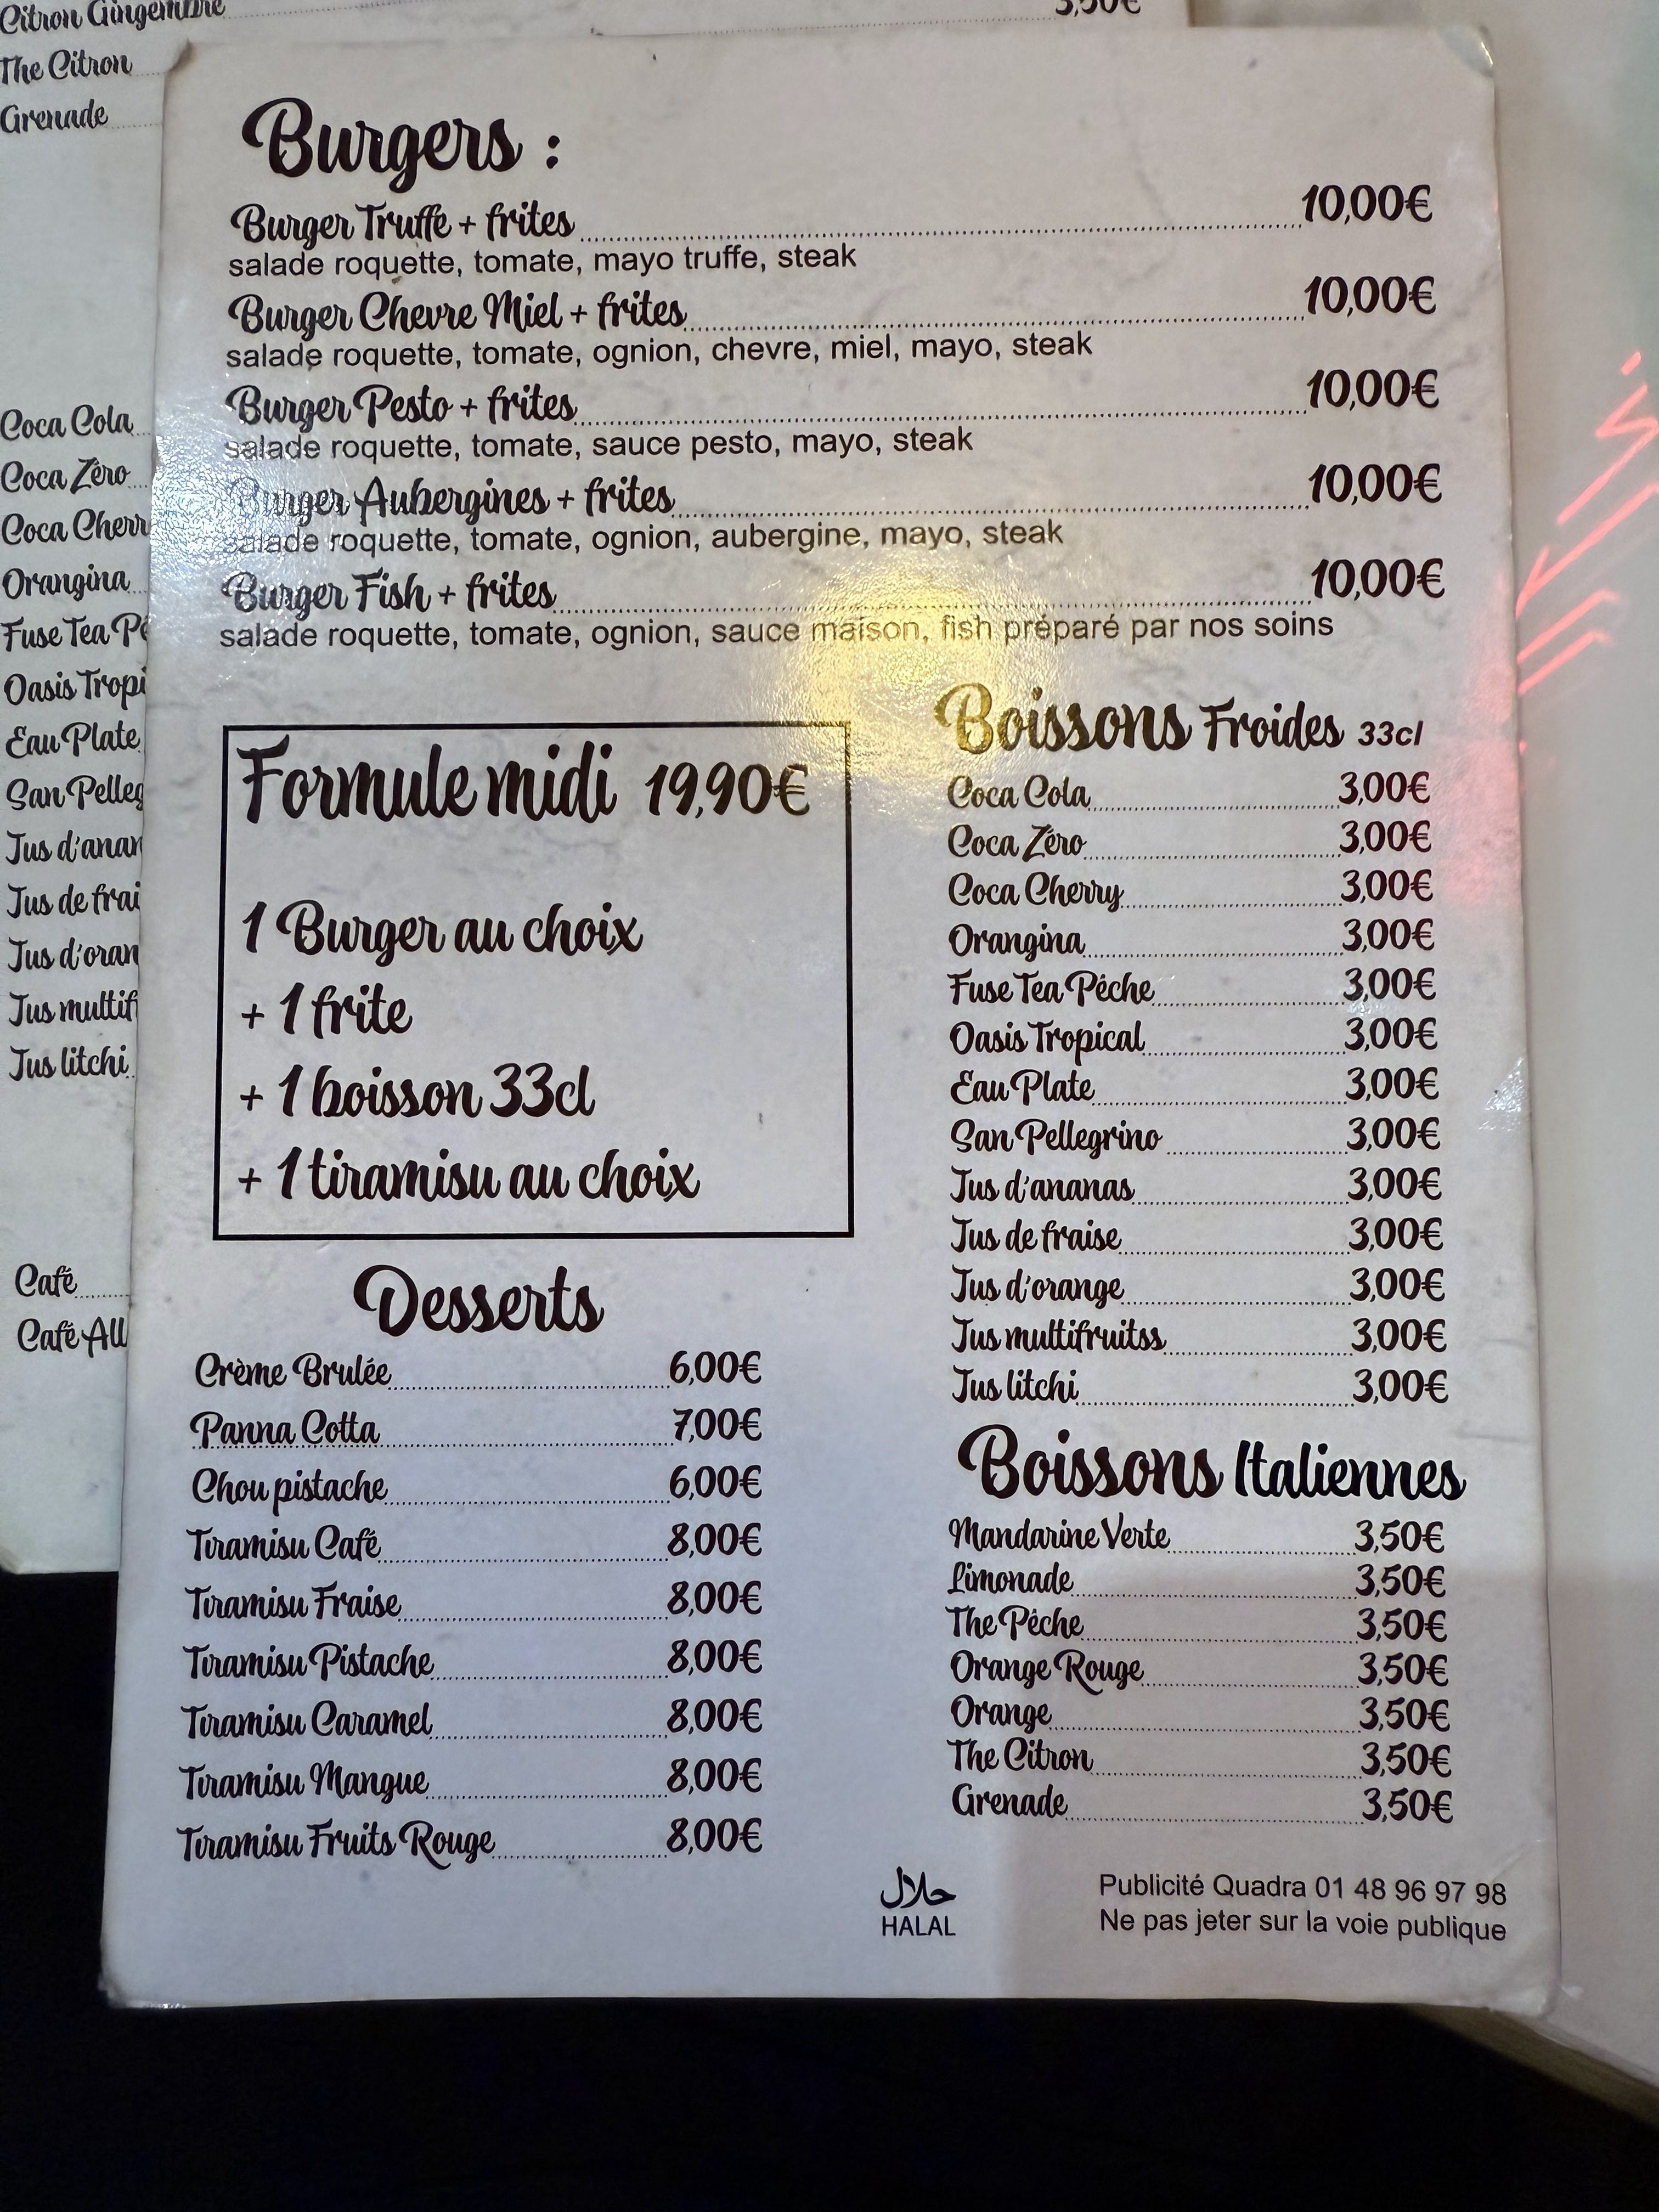 Citron Gingembre 3,50€
The Citron
Grenade
Coca Cola
Coca Zéro
Coca Cherr
Orangina
Fuse Tea Pê
Oasis Tropi
Eau Plate
San Pelleg
Jus d'anan
Jus de frai
Jus d'oran
Jus multif
Jus litchi
Café
Café All
Burgers :
Burger Truffe + frites 10,00€
salade roquette, tomate, mayo truffe, steak
Burger Chevre Miel + frites 10,00€
salade roquette, tomate, ognion, chevre, miel, mayo, steak
Burger Pesto + frites 10,00€
salade roquette, tomate, sauce pesto, mayo, steak
Burger Aubergines + frites 10,00€
salade roquette, tomate, ognion, aubergine, mayo, steak
Burger Fish + frites 10,00€
salade roquette, tomate, ognion, sauce maison, fish préparé par nos soins
Formule midi 19,90€
1 Burger au choix
+ 1 frite
+ 1 boisson 33cl
+ 1 tiramisu au choix
Desserts
Crème Brulée 6,00€
Panna Cotta 7,00€
Chou pistache 6,00€
Tiramisu Café 8,00€
Tiramisu Fraise 8,00€
Tiramisu Pistache 8,00€
Tiramisu Caramel 8,00€
Tiramisu Mangue 8,00€
Tiramisu Fruits Rouge 8,00€
Boissons Froides 33cl
Coca Cola 3,00€
Coca Zéro 3,00€
Coca Cherry 3,00€
Orangina 3,00€
Fuse Tea Pêche 3,00€
Oasis Tropical 3,00€
Eau Plate 3,00€
San Pellegrino 3,00€
Jus d'ananas 3,00€
Jus de fraise 3,00€
Jus d'orange 3,00€
Jus multifruitss 3,00€
Jus litchi 3,00€
Boissons Italiennes
Mandarine Verte 3,50€
Limonade 3,50€
The Pêche 3,50€
Orange Rouge 3,50€
Orange 3,50€
The Citron 3,50€
Grenade 3,50€
حلال
HALAL
Publicité Quadra 01 48 96 97 98
Ne pas jeter sur la voie publique